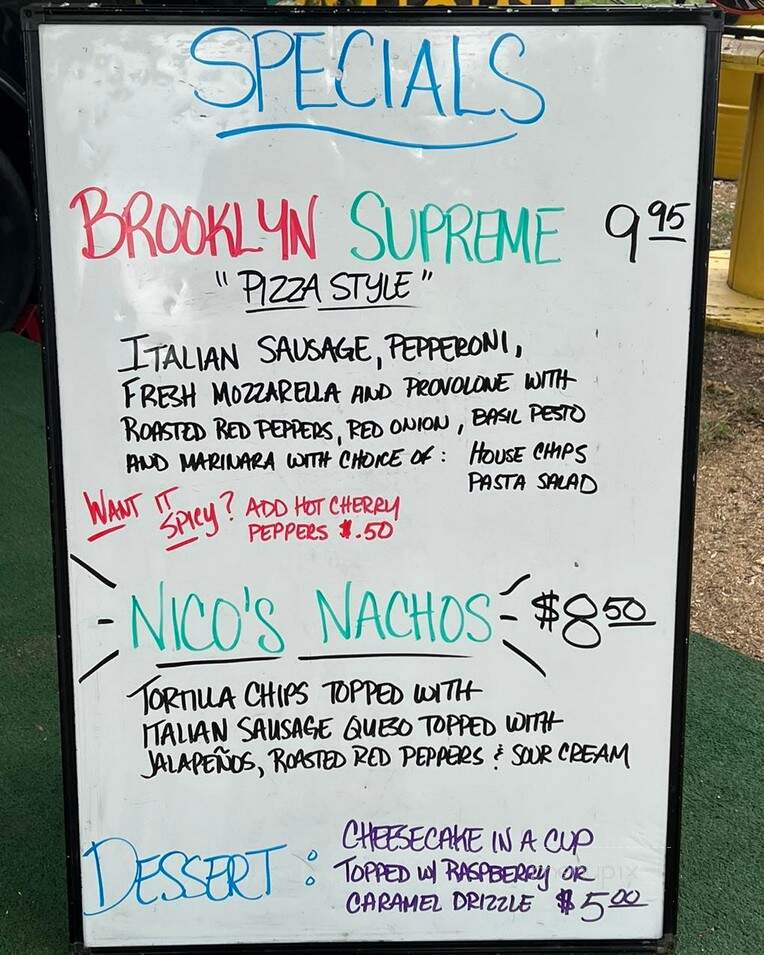 SPECIALS
BROOKLYN SUPREME 9 95
"PIZZA STYLE"
ITALIAN SAUSAGE, PEPPERONI,
FRESH MOZZARELLA AND PROVOLONE WITH
ROASTED RED PEPPERS, RED ONION, BASIL PESTO
AND MARINARA WITH CHOICE OF: HOUSE CHIPS
PASTA SALAD
WANT IT SPICY? ADD HOT CHERRY
PEPPERS $.50
NICO'S NACHOS $8 50
TORTILLA CHIPS TOPPED WITH
ITALIAN SAUSAGE QUESO TOPPED WITH
JALAPEÑOS, ROASTED RED PEPPERS & SOUR CREAM
DESSERT: CHEESECAKE IN A CUP
TOPPED W/ RASPBERRY OR
CARAMEL DRIZZLE $5.00